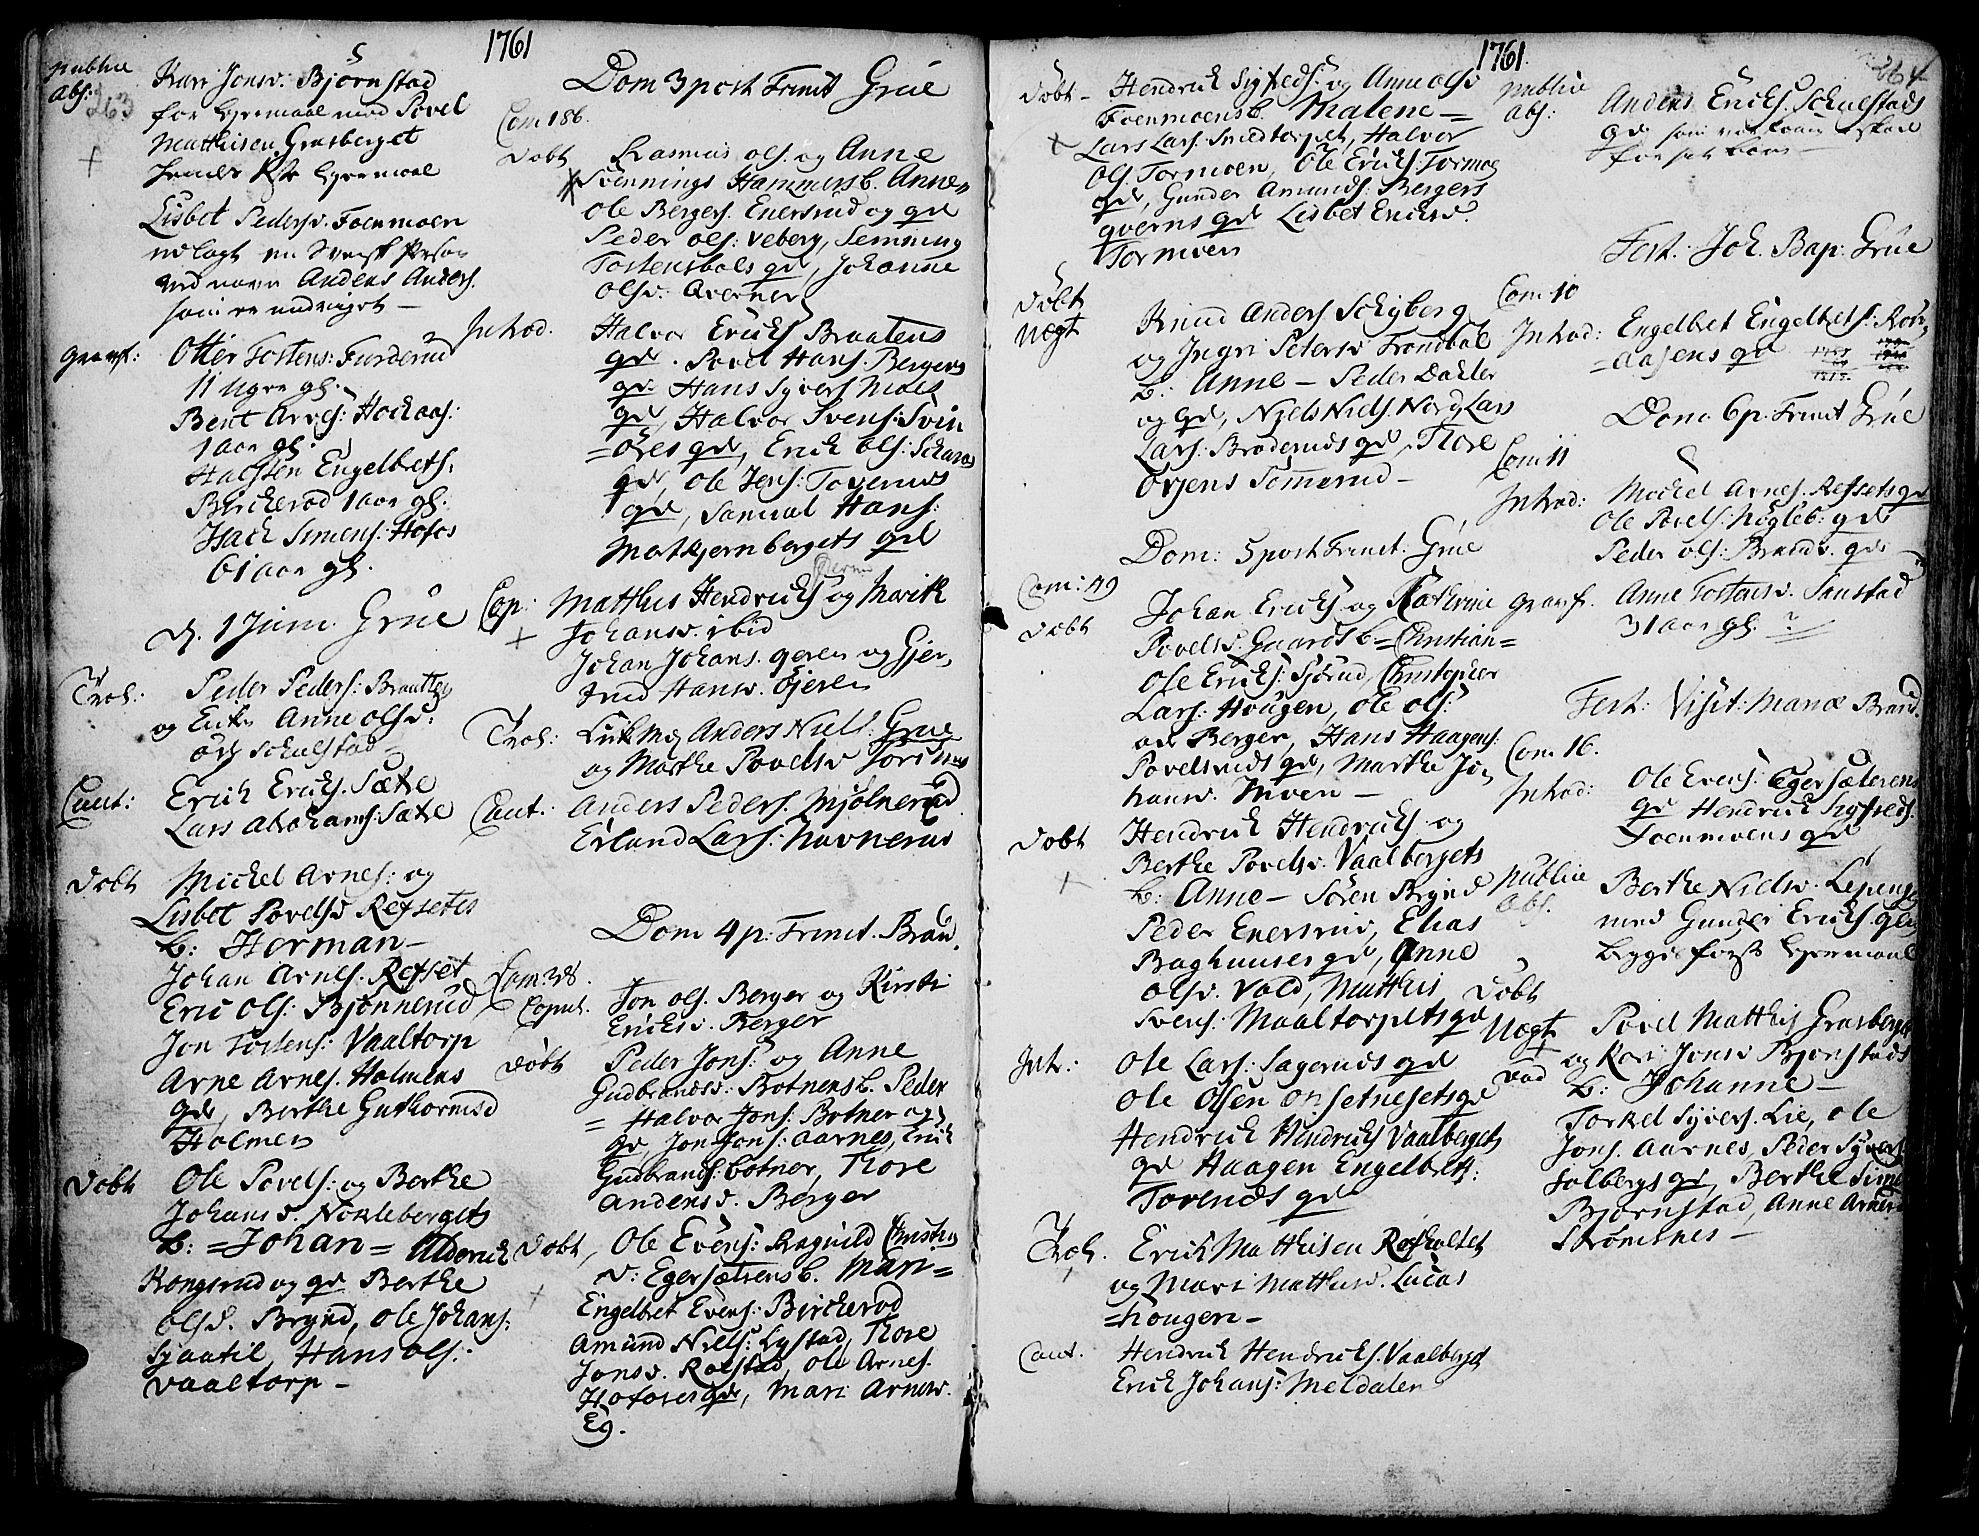 1761
263
publice
abs:
Kari Jonsd: Bjørnstad
for Lejermaal med Povel
Matthisen Grasberget
hendes Lejermaal
Lisbet Pedersd. Foenmoen
udlagt en Svensk Person
ved navn Anders Anders.
som er undviget —
Gravf:
Otter Tostens: Furderud
11 Uger gl.
Bent Arves: Hockaas:
1 aar gl.
Halsten Engelbrets.
Birckerød 1 aar gl.
Isach Simens: Hofos
61 aar gl.
d. 1 Junii Grüe
Trol:
Peder Peders: Braatten
og Enke Anne Olsd:
Schulstad
Caut:
Erich Erichs. Sætre
Lars Abrahams: Sætre
Døbt
Michel Arnes: og
Lisbet Povelsd Refsetes
b: Herman —
Johan Arnes. Refset
Eric Ols: Bjønnerud
Jon Tostens: Vaaltorp
Arne Arnes. Holmens
qde, Berthe Guthormsd
Holmen
Døbt
Ole Povels: og Berthe
Johansd. Nøklebergets
b: = Johan = Alderich
Kongsrud og qde Berthe
Olsd. Brynd, Ole Johans:
Sjaatil, Hans Ols:
Vaaltorp —
Dom 3 post Trinit Grüe
Com 186.
Døbt
Rasmus Ols. og Anne
Svennings Hammers b. Anne =
Ole Bergers. Enersrud og qde
Peder Ols: Veberg, Semming
Tostensbøls qde, Johanne
Olsd: Qverner
Introd.
Halvor Erichs Braatens
qde. Povel Hans. Bergers
qde Hans Syvers Moes
qde, Halvor Svens: Svin
= oxes qde, Erich Ols: Skaras
qde, Ole Jens: Toveruds
qde, Samuel Hans:
Mortkjernbergets qde
Cop:
Matthis Hendrichs og Marith
Johansd. ibid
Johan Johans. Qeren og Gjer,
trud Hansd. Øjeren
Trol:
Anders Niels: Grue
og Marthe Povelsd Jorsmoes
Caut:
Anders Peders. Mjølnerud
Erland Lars: Navnerud
Dom 4 p: Trinit. Bran.
Com: 38.
Copul.
Jon Ols. Berger og Kirsti
Erichsd. Berger
Døbt
Peder Jons: og Anne
Gudbrandsd: Botnens b. Peder
= Halvor Jons: Botner og
qde, Jon Jons: Aarnes, Erich
Gudbrands: Botner, Thore
Andersd. Berger
Døbt,
Ole Evens: Ragnild Christies
d: Egersætrens b. Mari =
Engelbret Evens: Birckerød
Amund Niels: Lystad, Thore
Jonsd. Rolstad, Ole Arnes.
Hofoses qde, Mari Arnesd.
Eg.
1761.
264
Døbt —
Hendrich Sigfreds: og Anne Olsd
Foenmoens b. Malene =
Lars Lars: Smedtorpet, Halvor
Ols. Tormoen, Ole Erichs: Tormoe
qde, Gunder Amunds: Bergers
qverns qde Lisbet Erichsd.
Tormoen
Døbt
Uægt
Knud Anders Schyberg
og Ingri Petersd Trondbøl
b: Anne — Peder Dahler
og qde, Niels Niels Nord, Lars
Lars: Brøderuds qde, Thore
Ørjens Tømmerud —
Dom: 5 post Trinit. Grüe
Com: 49
Døbt
Johan Erichs og Kathrine
Povelsd: Gaards b = Christian =
Ole Erichs: Sjørud, Christopher
Lars: Hougen, Ole Ols:
Berger, Hans Haagens:
Povelsruds qde, Marthe Jo
hansd. Moen —
Døbt
Hendrich Hendrichs og
Berthe Povelsd. Vaalbergets
b: Anne — Søren Brynd
Peder Enersrud, Elias
Baghuuses qde, Anne
Olsd. Vold, Matthis
Svens: Maaltorpets qde
Intr:
Ole Lars: Sageruds qde
Ole Olsen Onsetnesets qde
Hendrich Hendrichs Vaalbergets
qde Haagen Engelbrets:
Toveruds qde
Trol.
Erich Matthisen Refholtet
og Mari Matthisd. Lucas
= hougen —
Caut.
Hendrich Hendrichs. Vaalberget
Erich Johans: Meldalen
publice
abs:
Anders Erichs. Schulstads
qde
Fest: Joh. Bap: Grüe
Com: 10
Introd:
Engelbret Engelbrets: Rot,
= aasens qde
Dom. 6 p. Trinit Grüe
Com 11
Introd:
Michel Arnes. Refsets qde
Ole Povels: Nøgleb: qde
Peder Ols: Brands. qde
Gravf.
Anne Tostensd. Sanstad
31 aar gl. ?
Fest: Visit: Mariæ Brand.
Com 16.
Introd:
Ole Evens: Egersæterens
qde Hendrich Sigfreds.
Foenmoens qde
publice
abs.
Berthe Nielsd. Løpeng
med Gunder Erichs.
begges første Lejermaal
Døbt
Uægt
Povel Matthis Grasberget
og Kari Jonsd Bjørnstads
b: Johanne —
Torkel Syvers. Lie, Ole
Jons. Aarnes, Peder Syvers
Solbergs qde, Berthe Simens
Bjørnstad, Anne Arnesd
Strømsnes —